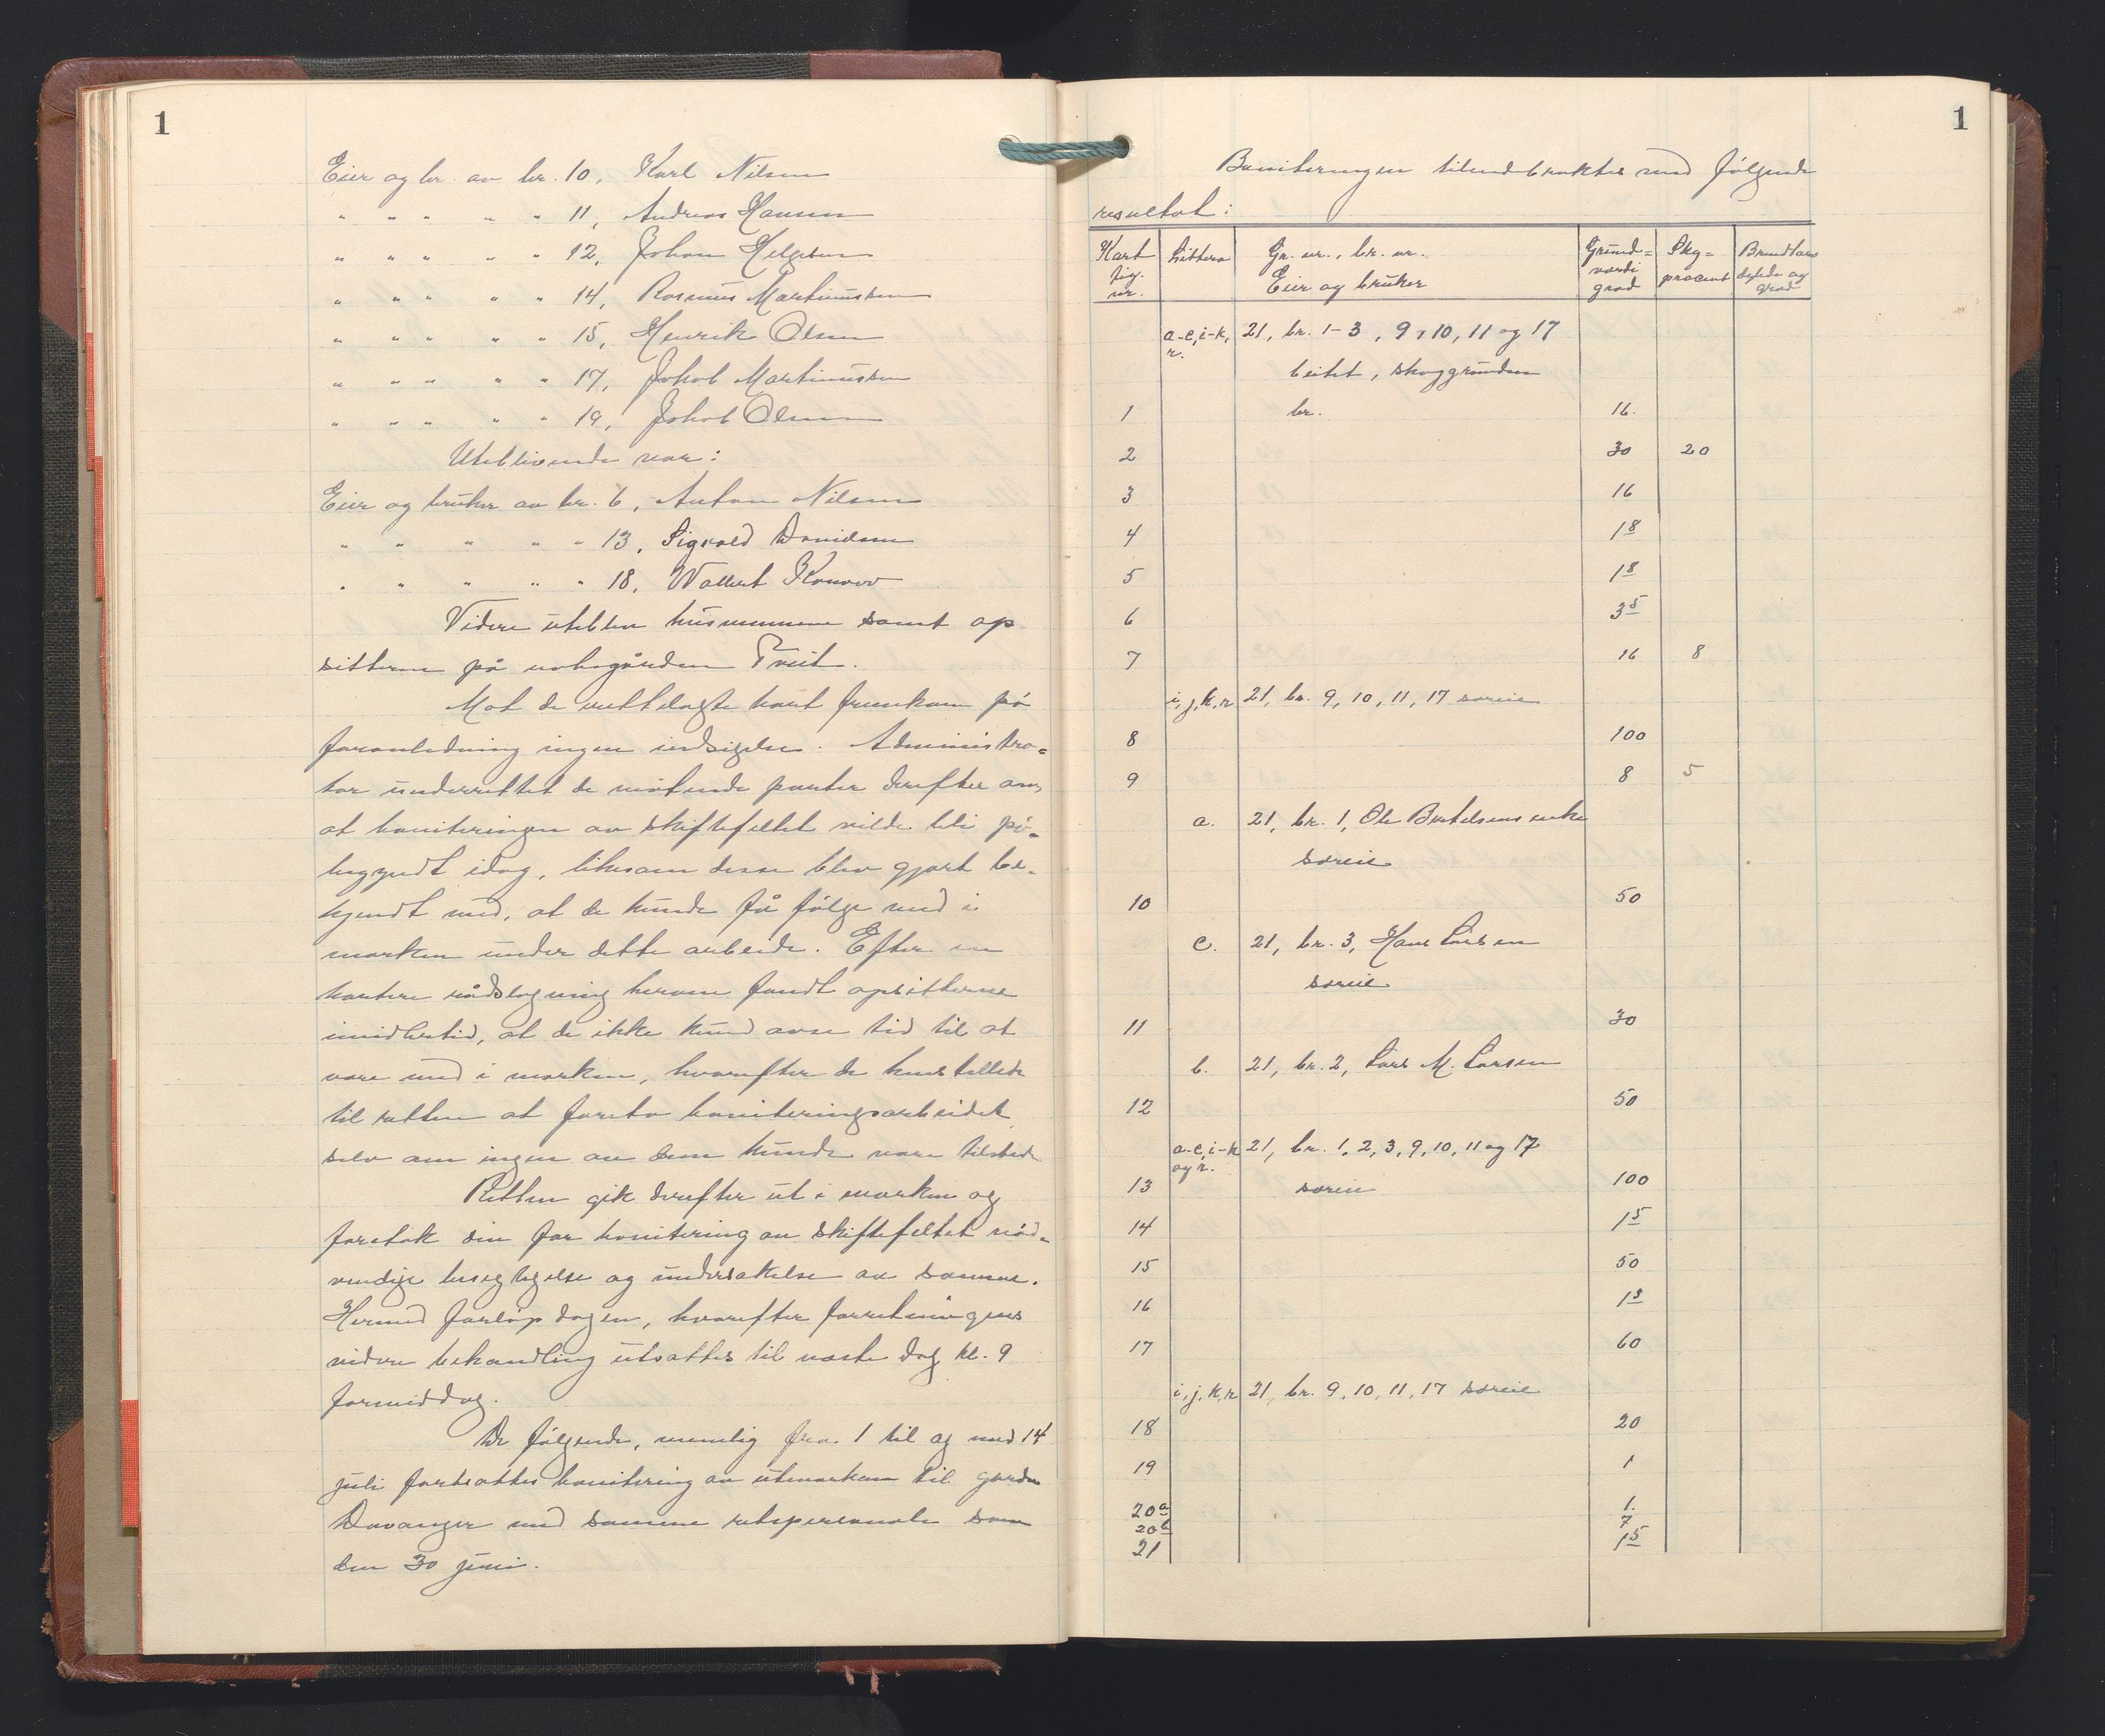 1
Eier og br. av br. 10, Karl Nilsen
" " " " " 11, Andreas Hansen
" " " " " 12, Johan Helgesen
" " " " " 14, Rasmus Martinussen
" " " " " 15, Henrik Olsen
" " " " " 17, Jakob Martinussen
" " " " " 19, Jakob Olsen
Uteblivende var:
Eier og bruker av br. 6, Anton Nilsen
" " " " " 13, Sigvald Danielsen
" " " " " 18, Wollert Konow
Videre uteblev husmennene samt op
sitterne på nabogården Tveit.
Mot de fremkom på
foranledning ingen indsigelse. Administra=
tor underrettet de møtende parter derefter om,
at boniteringen av skiftefeltet vilde bli på-
begyndt idag, likesom disse blev gjort be-
kjendt med, at de kunde få følge med i
marken under dette arbeide. Efter en
kortere rådslagning herom fandt opsitterne
imidlertid, at de ikke kund avse tid til at
være med i marken, hvorefter de henstillede
til retten at foreta boniteringsarbeidet,
selv om ingen av dem kunde være tilstede
Retten gik derefter ut i marken og
foretok den for bonitering av skiftefeltet nød-
vendige besigtigelse og undersøkelse av samme.
Hermed forløp dagen, hvorefter forretningens
videre behandling utsattes til næste dag kl. 9
formiddag.
De følgende, nemlig fra 1 til og med 14
juli fortsattes bonitering av utmarken til garden
Davanger med samme retspersonale som
den 30 juni.
1
Boniteringen tilendebraktes med følgende
resultat:
Kart fig. nr. Littera Gr. nr., br. nr. Eier og bruker Grund= værdi grad Skg= procent
a-c, i-k, r. 21, br. 1-3, 9, 10, 11 og 17
beitet, skoggrunden
1 br. 16.
2 30 20
3 16
4 1⁸
5 1⁸
6 3⁵
7 16 8
i, j, k, r 21, br. 9, 10, 11, 17 særeie
8 100
9 8 5
a. 21, br. 1, Ole Bertelsens enke
særeie
10 50
c. 21, br. 3, Hans Larsen
særeie
11 30
b. 21, br. 2, Lars M. Larsen
12 50
a-c, i-k og r. 21, br. 1, 2, 3, 9, 10, 11 og 17
13 særeie 100
14 1⁵
15 50
16 1³
17 60
i, j, k, r 21, br. 9, 10, 11, 17 særeie
18 20
19 1
20a 1.
20b 7
21 1⁵